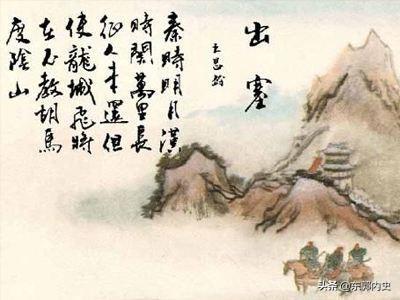 出塞
王昌龄
秦時明月漢
時關萬里長
征人未還但
使龍城飛將
在不教胡馬
度陰山
头条 @东郭内史